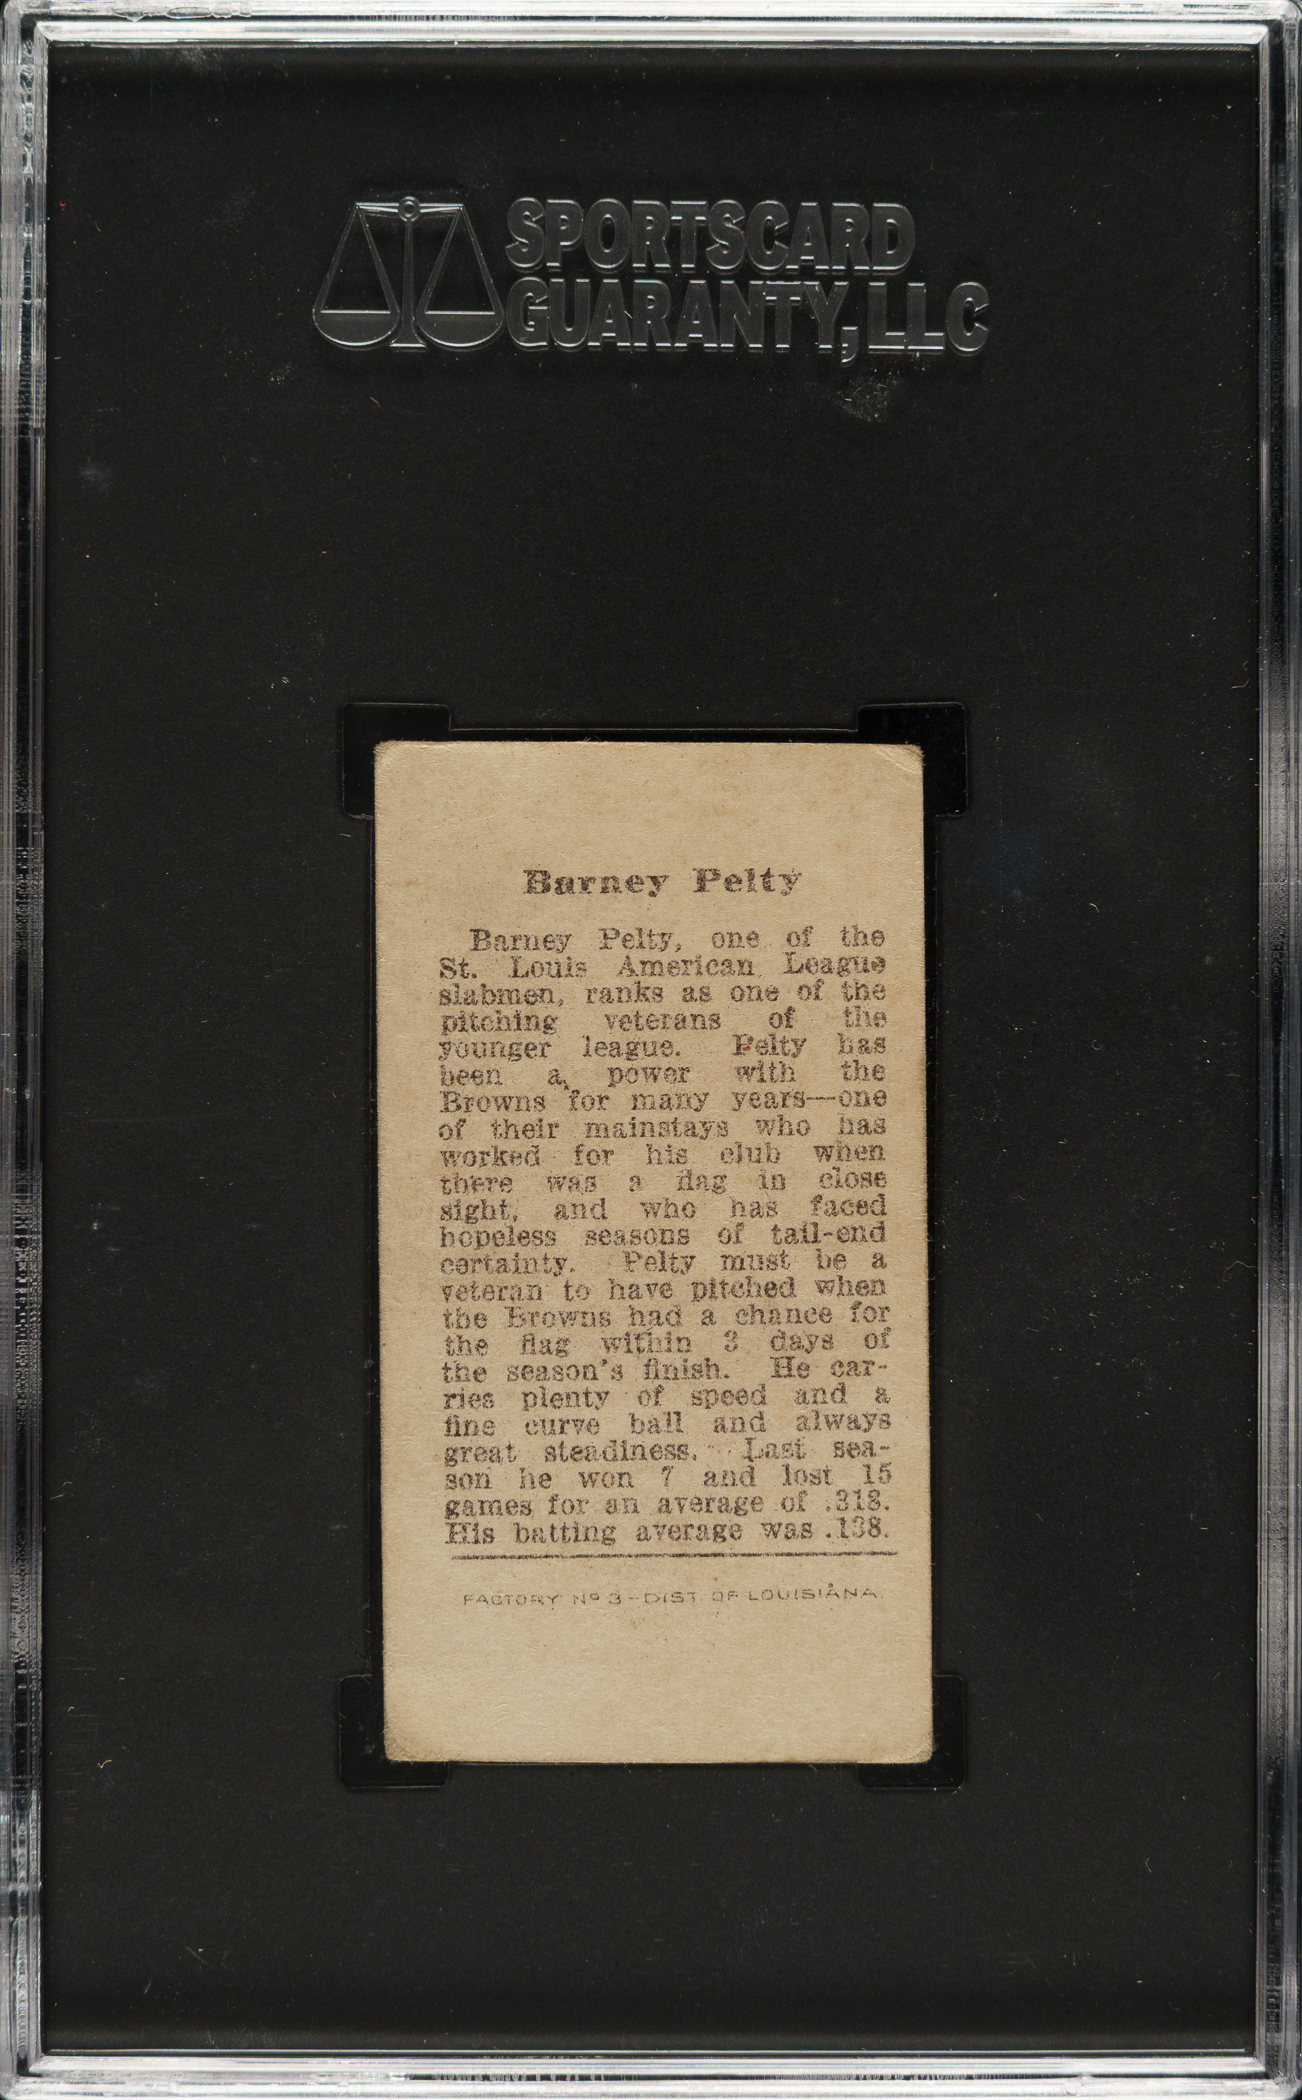 SPORTSCARD
GUARANTY, LLC
Barney Pelty
Barney Pelty, one of the
St. Louis American League
slabmen, ranks as one of the
pitching veterans of the
younger league. Pelty has
been a power with the
Browns for many years—one
of their mainstays who has
worked for his club when
there was a flag in close
sight, and who has faced
hopeless seasons of tail-end
certainty. Pelty must be a
veteran to have pitched when
the Browns had a chance for
the flag within 3 days of
the season's finish. He car-
ries plenty of speed and a
fine curve ball and always
great steadiness. Last sea-
son he won 7 and lost 15
games for an average of .318.
His batting average was .138.
FACTORY Nº 3-DIST. OF LOUISIANA.